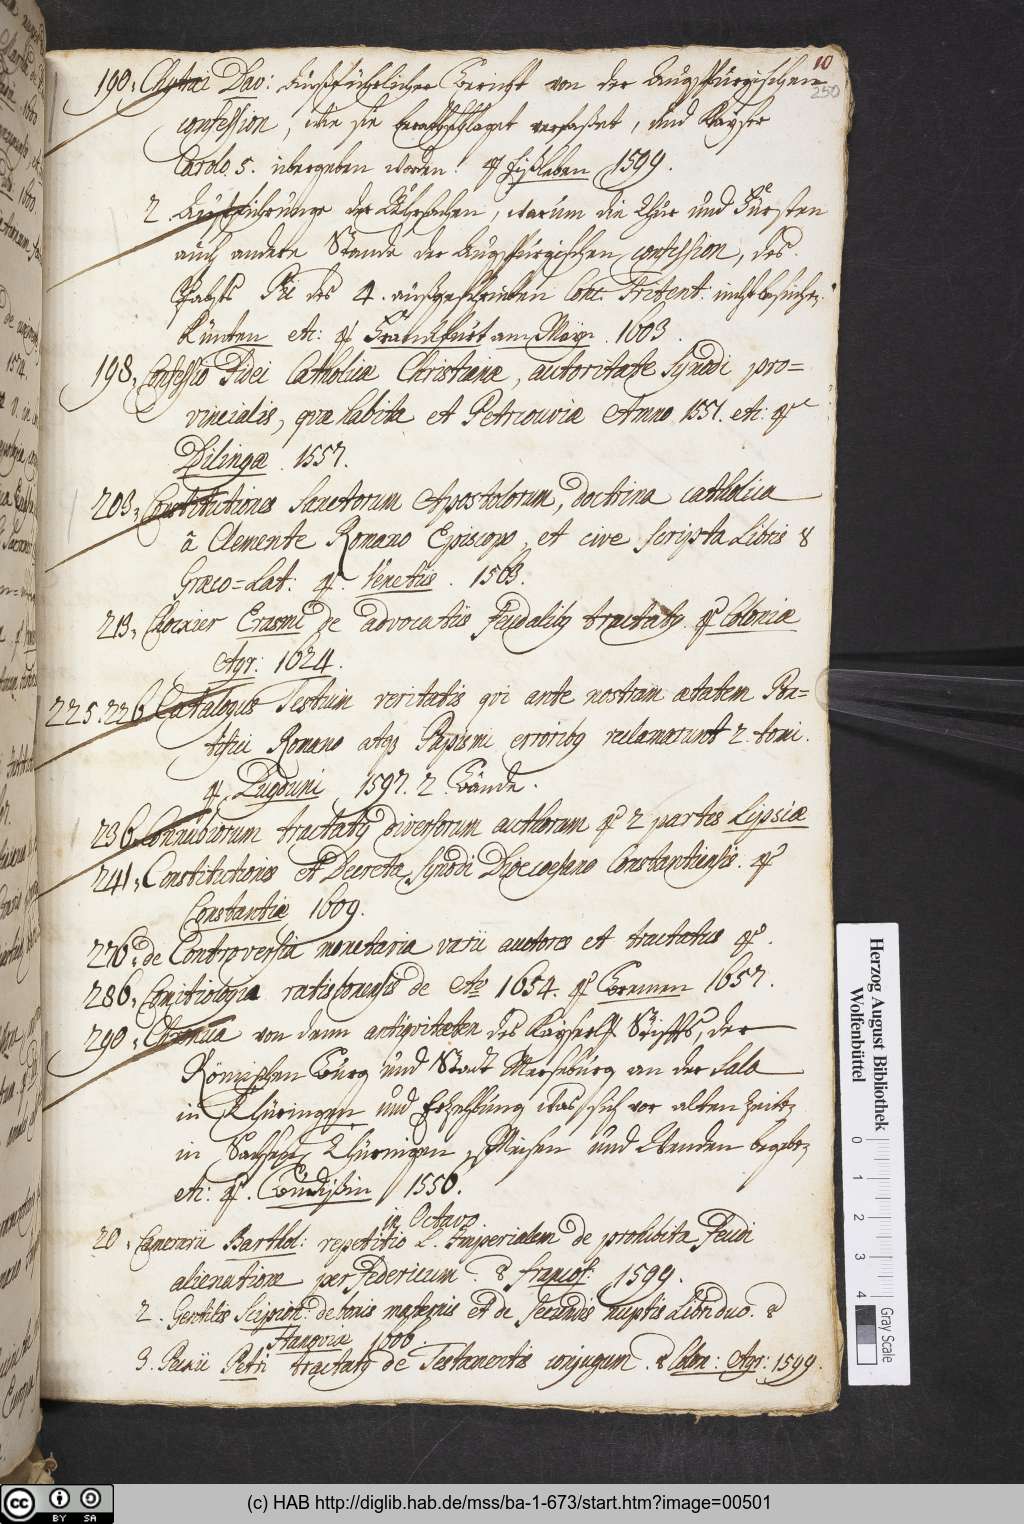 10
250
190. Chytraei Dav: Außführlicher Bericht von der Augspurgischen
confession, wie sie berathschlaget verfaßet, und Kayser
Carolo. 5. ubergeben worden. 4 Eißleben 1599.
2 Außführunge der Uhrsachen, warum die Chur und Fürsten
auch andere Stande der Augspurgischen confession, des
Pabsts Pii des 4. außgeschrieben Conc. Trident: nicht besuchen
Künten etc: 4 Franckfurt am Mayn. 1603.
198. Confessio Fidei Catholicae Christianae, autoritate Synodi pro=
vincialis, quae habita et Petricoviae Anno 1551. etc: 4
Dilingae. 1557.
203. Constitutiones Sanctorum Apostolorum, doctrina catholica
à Clemente Romano Episcopo, et cive scripta Libris 8
Graeco=Lat: 4. Venetiis. 1563.
213. Chockier Erasmi de advocatiis Feudalibus tractatus 4 Coloniae
Agr: 1624.
225. 226. Catalogus Testium veritatis qvi ante nostram aetatem Pon=
tifici Romano atque Papismi erroribus reclamarunt 2. tomi.
4 Lugduni 1597. 2. Bände.
236. Connubiorum tractatus diversorum authorum 4 2 partes Lipsiae
241. Constitutiones et Decreta Synodi Dioecesano Constantiensis. 4
Constantiae 1609.
276. de Controversia monetaria varii auctores et tractatus 4.
286. Comitiologia ratisbonensis de Ao 1654. 4 Bremen 1657.
290. Chronica von denn antiqvitaten des Kayserl. Stiffts, der
Römischen Burg und Stadt Marseburg an der Sala
in Thüringen und Erzehlung was sich vor alten Zeiten
in Sachsen, Thüringen, Meisen und Wenden begeben
etc: 4. Budißin 1556.
in Octavo.
20. Camerarii Barthol: repetitio L. Imperialem de prohibita Feudi
alienatione per Federicum. 8 francof: 1599.
2. Gentilis Scipion: de bonis maternis et de secundis nuptiis Libri duo. 8
Hanoviae 1606.
3. Peckii Petri tractatus de Testamentis conjugum. 8 Colon: Agr: 1599.
Herzog August Bibliothek
Wolfenbüttel
0 1 2 3 4
Gray Scale
cc BY SA
(c) HAB http://diglib.hab.de/mss/ba-1-673/start.htm?image=00501